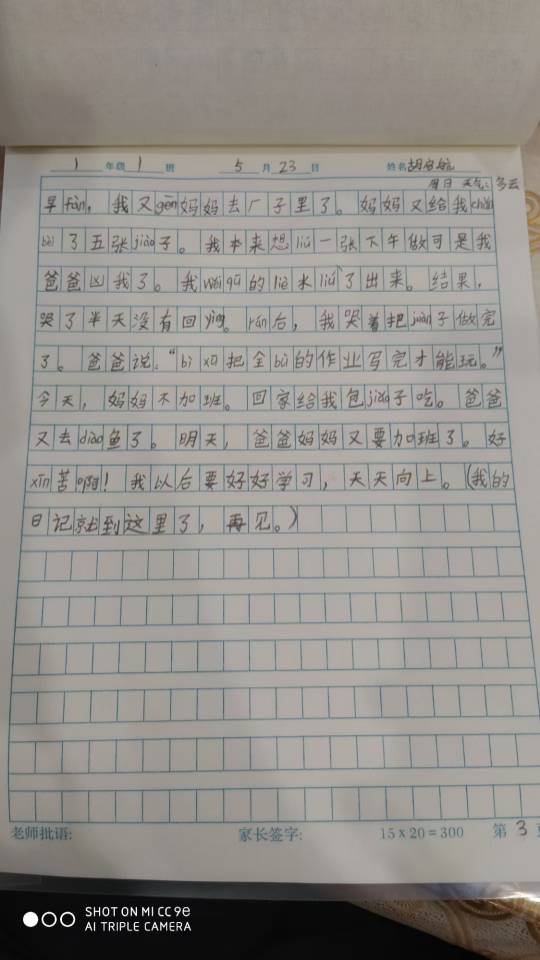 1 年级 1 班 5 月 23 日 姓名
周日 天气：多云
早fàn，我又gēn妈妈去厂子里了。妈妈又给我
了五张jiào子。我本来想liú一张下午做可是我
爸爸凶我了。我wěi qū的liè水liú了出来。结果，
哭了半天没有回yìng。rán后，我哭着把juàn子做完
了。爸爸说：“bì xū把全bù的作业写完才能玩。”
今天，妈妈不加班。回家给我包jiǎo子吃。爸爸
又去diào鱼了。明天，爸爸妈妈又要加班了。好
xīn苦啊！我以后要好好学习，天天向上。（我的
日记就到这里了，再见。）
老师批语： 家长签字： 15×20＝300 第 3 页
SHOT ON MI CC 9e
AI TRIPLE CAMERA